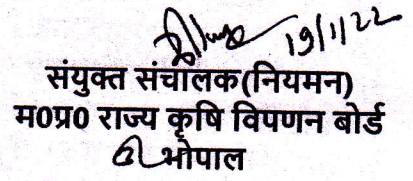 19/1/22
संयुक्त संचालक(नियमन)
म0प्र0 राज्य कृषि विपणन बोर्ड
भोपाल